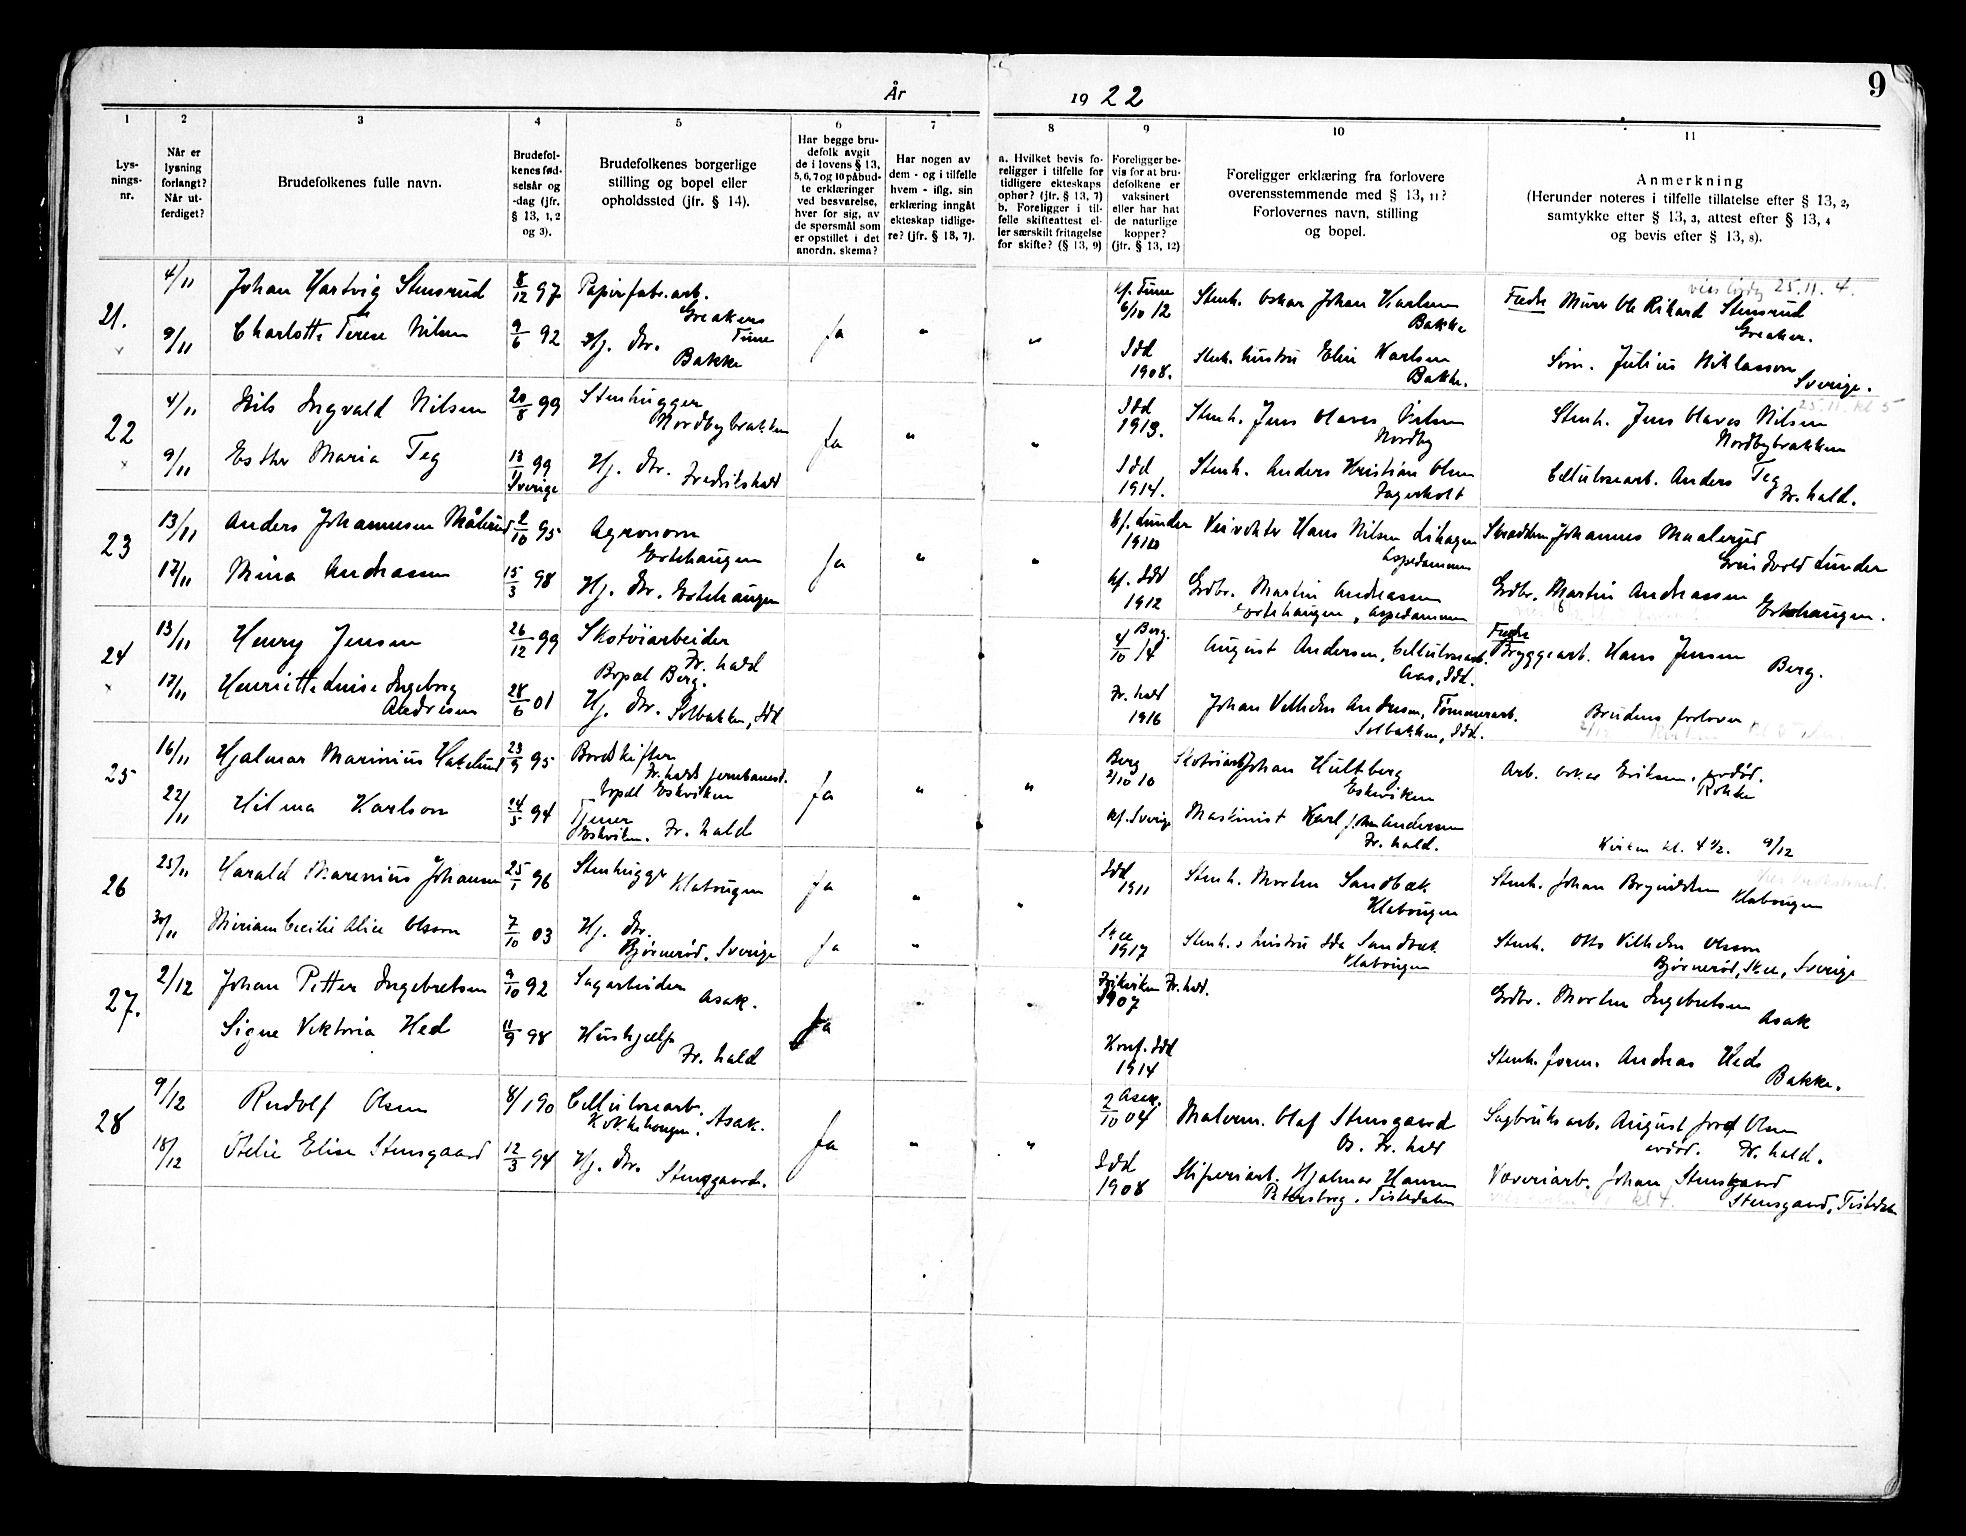 9
År
19 22
1
2
3
4
5
6
7
8
9
10
11
Lys-
nings-
nr.
Når er
lysning
forlangt?
Når ut-
ferdiget?
Brudefolkenes fulle navn.
Brudefol-
kenes fød-
selsår og
-dag (jfr.
§ 13, 1, 2
og 3).
Brudefolkenes borgerlige
stilling og bopel eller
opholdssted (jfr. § 14).
Har begge bru-
defolk avgit
de i lovens § 13,
5, 6, 7 og 10 påbud-
te erklæringer
ved besvarelse,
hver for sig, av
de spørsmål som
er opstillet i det
anordn. skema?
Har nogen av
dem - og i tilfelle
hvem - iflg. sin
erklæring inngåt
ekteskap tidlige-
re? (jfr. § 13, 7).
a. Hvilket bevis fo-
religger i tilfelle for
tidligere ekteskaps
ophør? (jfr. § 13, 7)
b. Foreligger i til-
felle skifteattest el-
ler særskilt fritagelse
for skifte? (§ 13, 9)
Foreligger be-
vis for at bru-
defolkene er
vaksinert
eller har hat
de naturlige
kopper?
(jfr. § 13, 12)
Foreligger erklæring fra forlovere
overensstemmende med § 13, 11?
Forlovernes navn, stilling
og bopel.
Anmerkning
(Herunder noteres i tilfelle tillatelse efter § 13, 2,
samtykke efter § 13, 3, attest efter § 13, 4
og bevis efter § 13, 8).
21.
4/11
Johan Hartvig Stensrud
8/12 97
Papirfabr.arb.
Greaker
Tune
kf. Tune
6/10 12
Stenh. Oskar Johan Karlsen
Bakke
25.11. 4.
Fadr Murer Ole Rikard Stensrud
Greaker.
9/11
Charlotte Terese Nilsen
9/6 92
Hj. dtr.
Bakke
Ja
"
"
Idd
1908.
Stenh. hustru Elin Karlsen
Bakke.
Julius Niklasson
Sverige.
22
4/11
Nils Ingvald Nilsen
20/8 99
Stenhugger
Nordbybrakken
Ja
"
"
Idd
1913.
Stenh. Jens Olaves Nilsen
Nordby
25.11. kl 5
Stenh. Jens Olaves Nilsen
Nordbybrakken
9/11
Esther Maria Teg
13/11 99
Sverige
Hj. dtr. Fredrikshald
Idd
1914.
Stenh. Anders Kristian Olsen
Fagerholt
Cellulosearb. Anders Teg
Fr. hald.
23
13/11
Anders Johannesen Målerud
2/10 95
Agronom
Ertehaugen
Ja
"
"
kf. Lunder
1910
Veivokter Hans Nilsen Lihagen
Aspedammen
Skredder Johannes Maalerud
Grindvold Lunder
17/11
Mina Andreassen
15/3 98
Hj. dtr. Ertehaugen
kf. Idd
1912
Grdbr. Martin Andreassen
Ertehaugen, Aspedammen
Grdbr. Martin Andreassen
Ertehaugen.
24
13/11
Henry Jensen
26/12 99
Skotöiarbeider
Fr. hald
Bopæl Berg.
Berg.
4/10 14
August Andersen, Cellulosearb.
Aas, Idd.
Fadr
Bryggearb. Hans Jensen
Berg.
17/11
Henriette Luise Ingeborg
Andresen
28/6 01
Hj. dtr. Solbakken, Idd
Fr. hald
1916
Johan Vilhelm Andresen, Tömmerarb.
Solbakken, Idd.
Brudens forlover
25
16/11
Hjalmar Marinius Hakelund
23/9 95
Bordskifter
Fr. hald jernbanest.
bopæl Eskviken
Ja
"
"
Berg
2/10 10
Skotöiarb Johan Hultberg
Eskviken
Arb. Oskar Eriksen, avdöd.
Rokke
22/11
Hilma Karlson
24/5 94
Tjener
Eskviken. Fr. hald
kf. Sverige
Maskinist Karl Joh. Andersen
Fr. hald.
Kirken kl. 4½. 9/12
26
25/11
Harald Marinius Johansen
25/1 96
Stenhugger
Klatougen
Ja
"
"
Idd
1911
Stenh. Morten Sandbæk
Klatougen
Stenh. Johan Brynildsen
Klatougen
30/11
Miriam Cecilie Alice Olsson
7/10 03
Hj. dtr.
Bjørnerød, Sverige
Ja
"
Skee
1917
Stenh.s hustru Ida Sandbæk
Klatougen
Stenh. Otto Vilhelm Olsson
Bjørnerød, Skee, Sverige
27.
2/12
Johan Petter Ingebretsen
9/10 92
Sagarbeider
Asak.
Ja
"
"
Fr. hald.
1907
Grdbr. Morten Ingebretsen
Asak
Signe Viktoria Hed
11/9 98
Hushjælp
Fr. hald
Konf. Idd
1914
Stenh. form. Andreas Hed
Bakke.
28
9/12
Rudolf Olsen
8/1 90
Cellulosearb.
Asak.
Ja
"
"
Asak.
2/10 04
Malerm. Olaf Stensgaard
Os. Fr. hald
Sagbruksarb. August Olsen
avdöd. Fr. hald.
18/12
Elise Stensgaard
12/3 94
Hj. dtr.
Stensgaard.
Idd
1908
Sliperiarb. Hjalmar Hansen
Petersborg. Tistedalen
Væveriarb. Johan Stensgaard
kl 4.
Stensgaard, Tistedalen